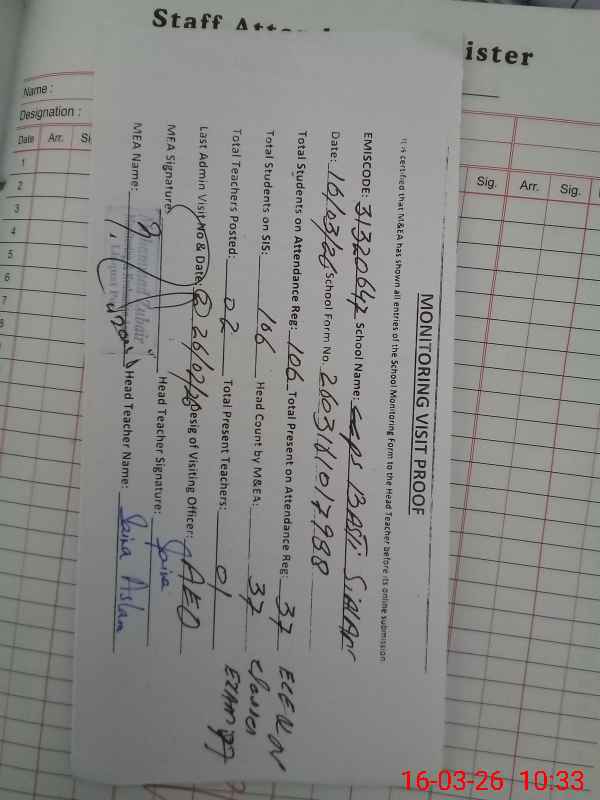 Staff Atten
ister
Name :
Designation :
Date Arr. Si
Sig. Arr. Sig.
1
2
3
4
5
6
7
8
MONITORING VISIT PROOF
It is certified that M&EA has shown all entries of the School Monitoring Form to the Head Teacher before its online submission
EMISCODE: 31320642 School Name: BASTI SIALAN
Date: 16/03/26 School Form No. 2603161017988
Total Students on Attendance Reg: 106 Total Present on Attendance Reg: 37
Total Students on SIS: 106 Head Count by M&EA: 37
Total Teachers Posted: 02 Total Present Teachers: 01
Last Admin Visit No & Date: 26/02/26 Desig of Visiting Officer: AEO
MEA Signature Head Teacher Signature: Saira
MEA Name: Head Teacher Name: Saira Aslam
16-03-26 10:33